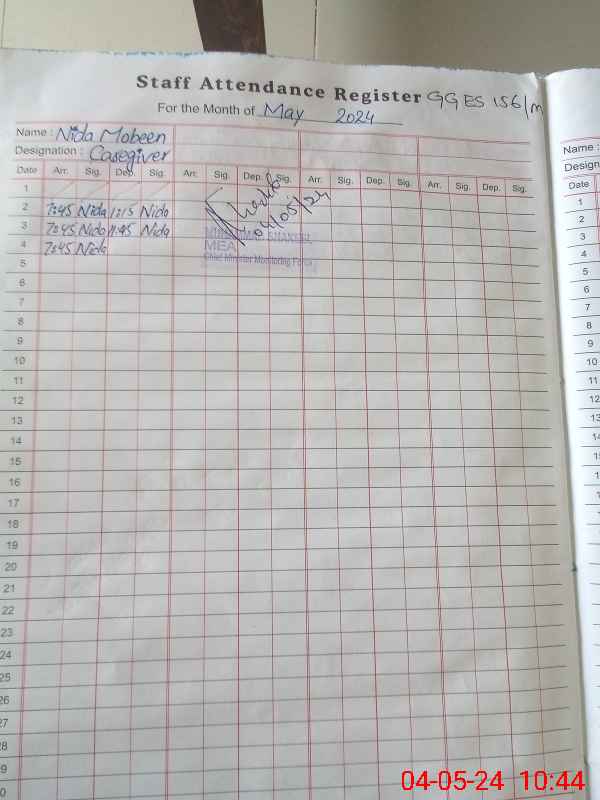 Staff Attendance Register GGES 156/m
For the Month of May 2024
Name : Nida Mobeen
Name :
Designation : Caregiver
Date Arr. Sig. Dep. Sig. Arr. Sig. Dep. Sig. Arr. Sig. Dep. Sig. Arr. Sig. Dep. Sig.
Date
1
2 7:45 Nida 1:15 Nida
3 7:45 Nida 11:45 Nida
4 7:45 Nida
04/05/24
MEA
Chief Minister Monitoring Force
5
6
7
8
9
10
11
12
13
14
15
16
17
18
19
20
21
22
23
24
25
26
27
28
1
2
3
4
5
6
7
8
9
10
11
12
13
14
04-05-24 10:44